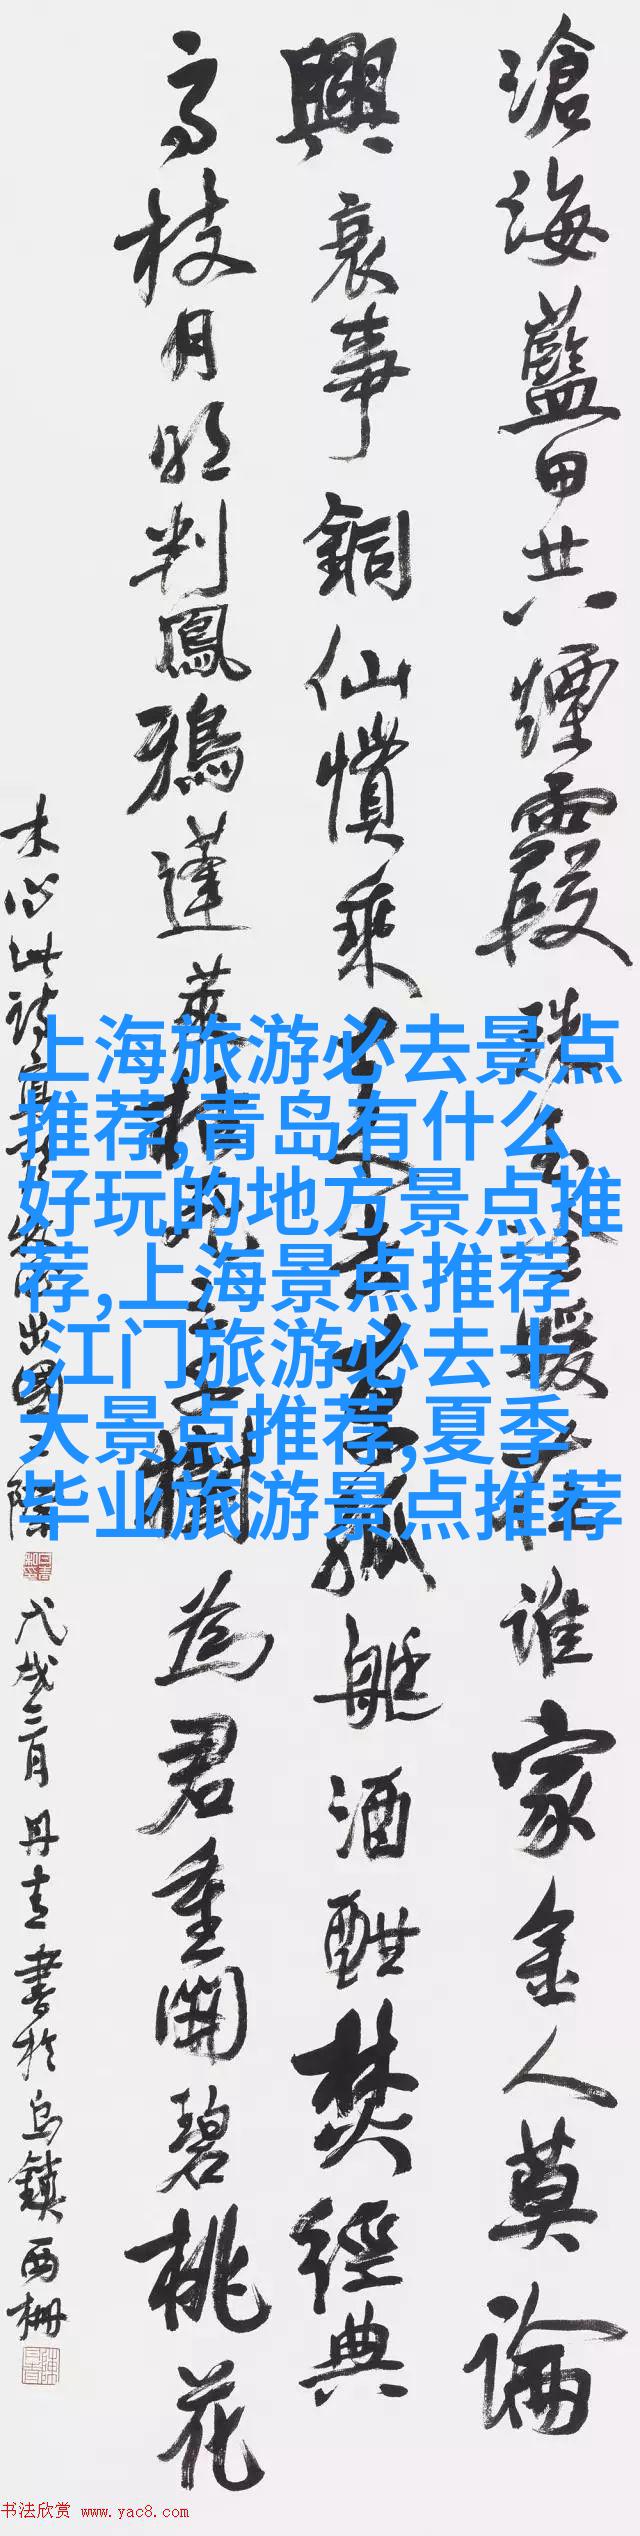 滄海藍田共煙霞暖在誰家金人莫論
興衰事銅仙慣乘孤艇酒酣焚經典
高枝月明判鳳鴉蓬萊為君重開碧桃花
木心此詩出國之際 戊戌三月 丹青書於烏鎮西柵
上海旅游必去景点
推荐,青岛有什么
好玩的地方景点推
荐,上海景点推荐
,江门旅游必去十
大景点推荐,夏季
毕业旅游景点推荐
书法欣赏 www.yac8.com